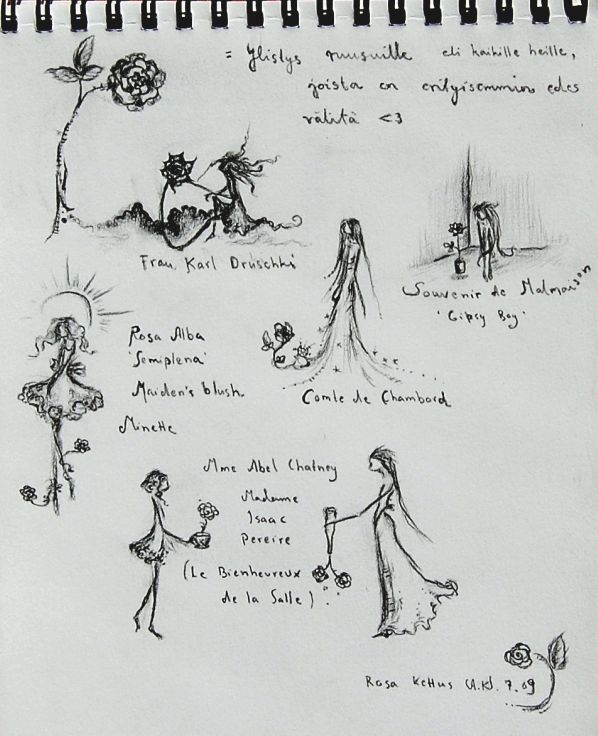 = Ylistys ruusuille eli kaikille heille,
joista en erityisemmin edes
välitä <3
Frau. Karl Druschki
Souvenir de Malmaison
'Gipsy Boy'
Rosa Alba
'Semiplena'
Maiden's blush
Minette
Comte de Chambord
Mme Abel Chatney
Madame
Isaac
Pereire
(Le Bienheureux
de la Salle)
Rosa Kettus (A.K). 7.09